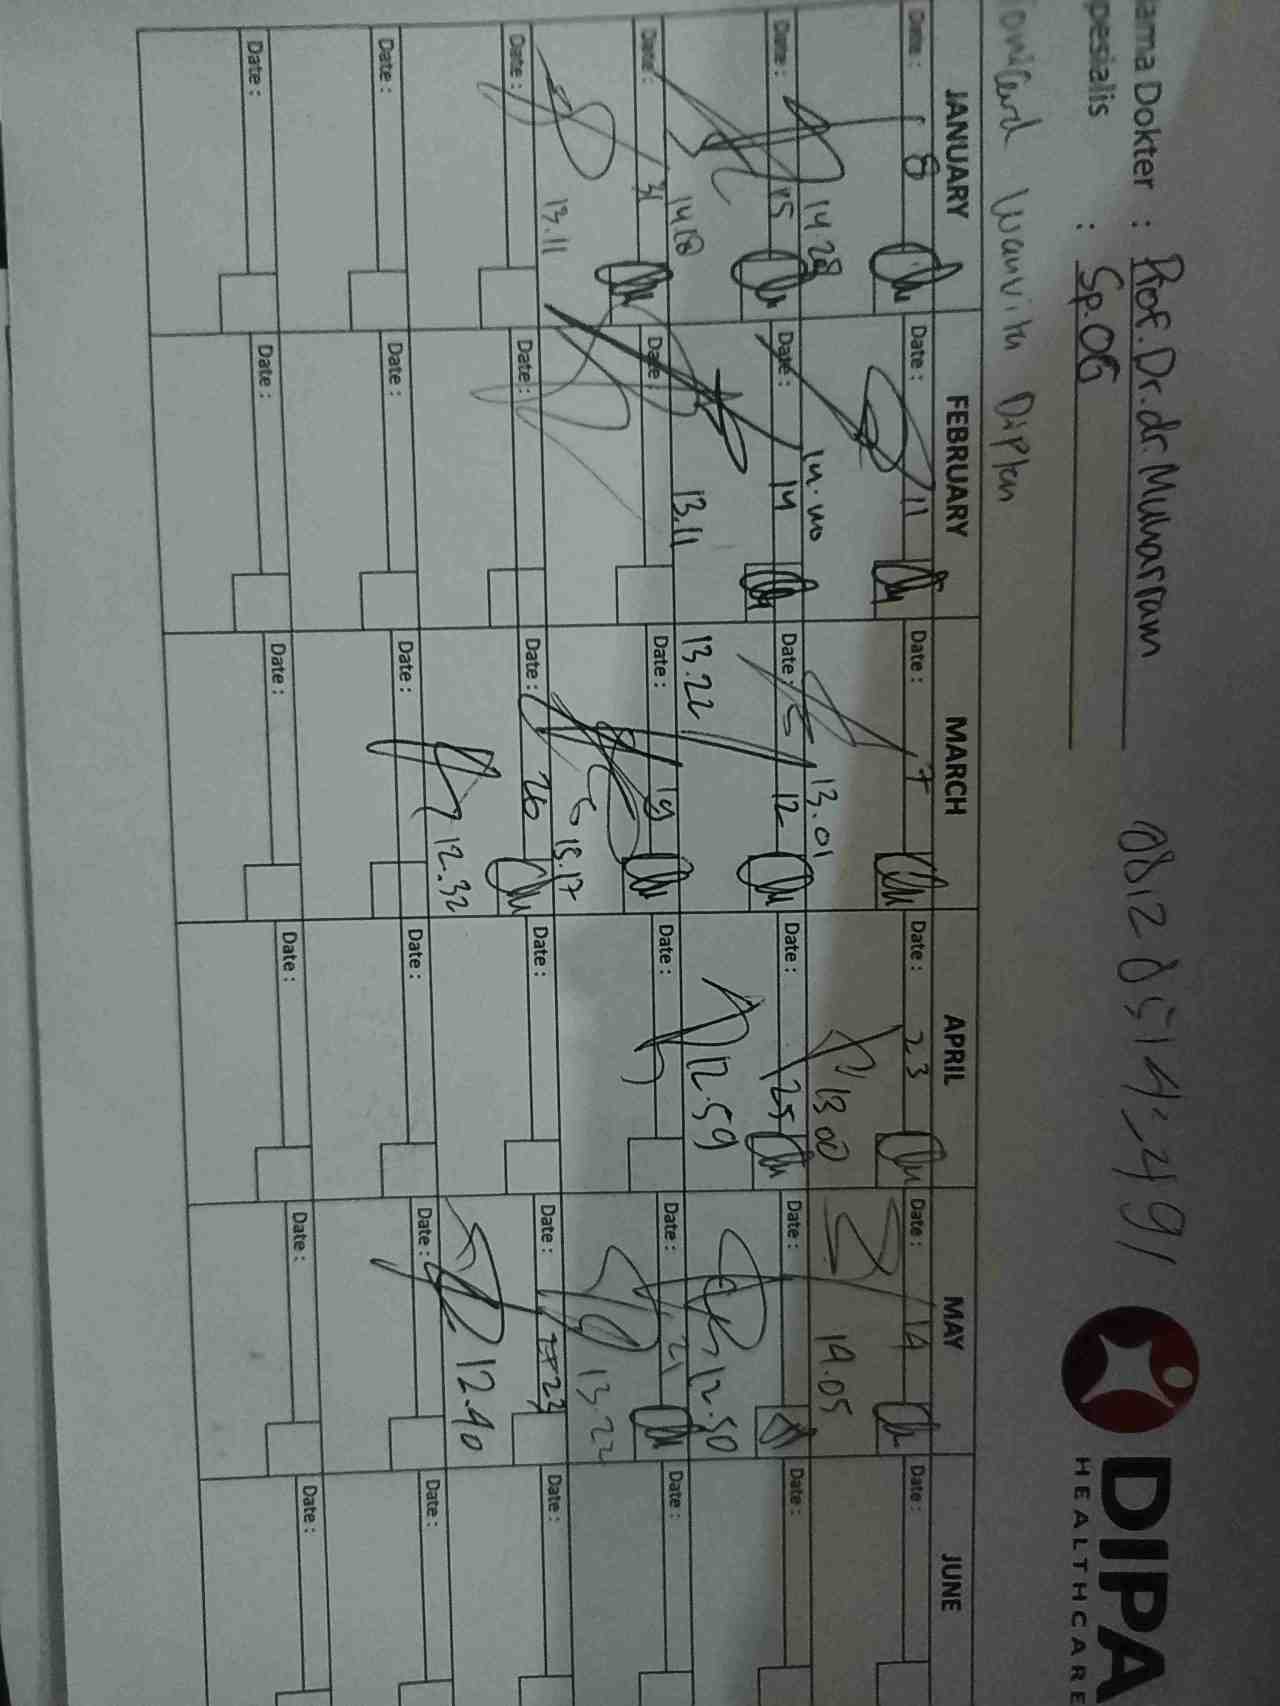 ama Dokter : Prof.Dr.dr.Muharram
pesialis : Sp.OG
DIPA
HEALTHCARE
JANUARY FEBRUARY MARCH APRIL MAY JUNE
Date : 8 Date : 11 Date : 7 Date : 23 Date : 14 Date :
14.28 13.01 13.00 14.05
Date : 15 Date : 14 Date : 12 Date : 25 Date : Date :
14.18 13.11 13.22 12.59 12.50
Date : 31 Date : Date : 19 Date : Date : 21 Date :
13.11 15.17 13.22
Date : Date : Date : 26 Date : Date : 23 Date :
12.32 12.40
Date : Date : Date : Date : Date : Date :
Date : Date : Date : Date : Date : Date :